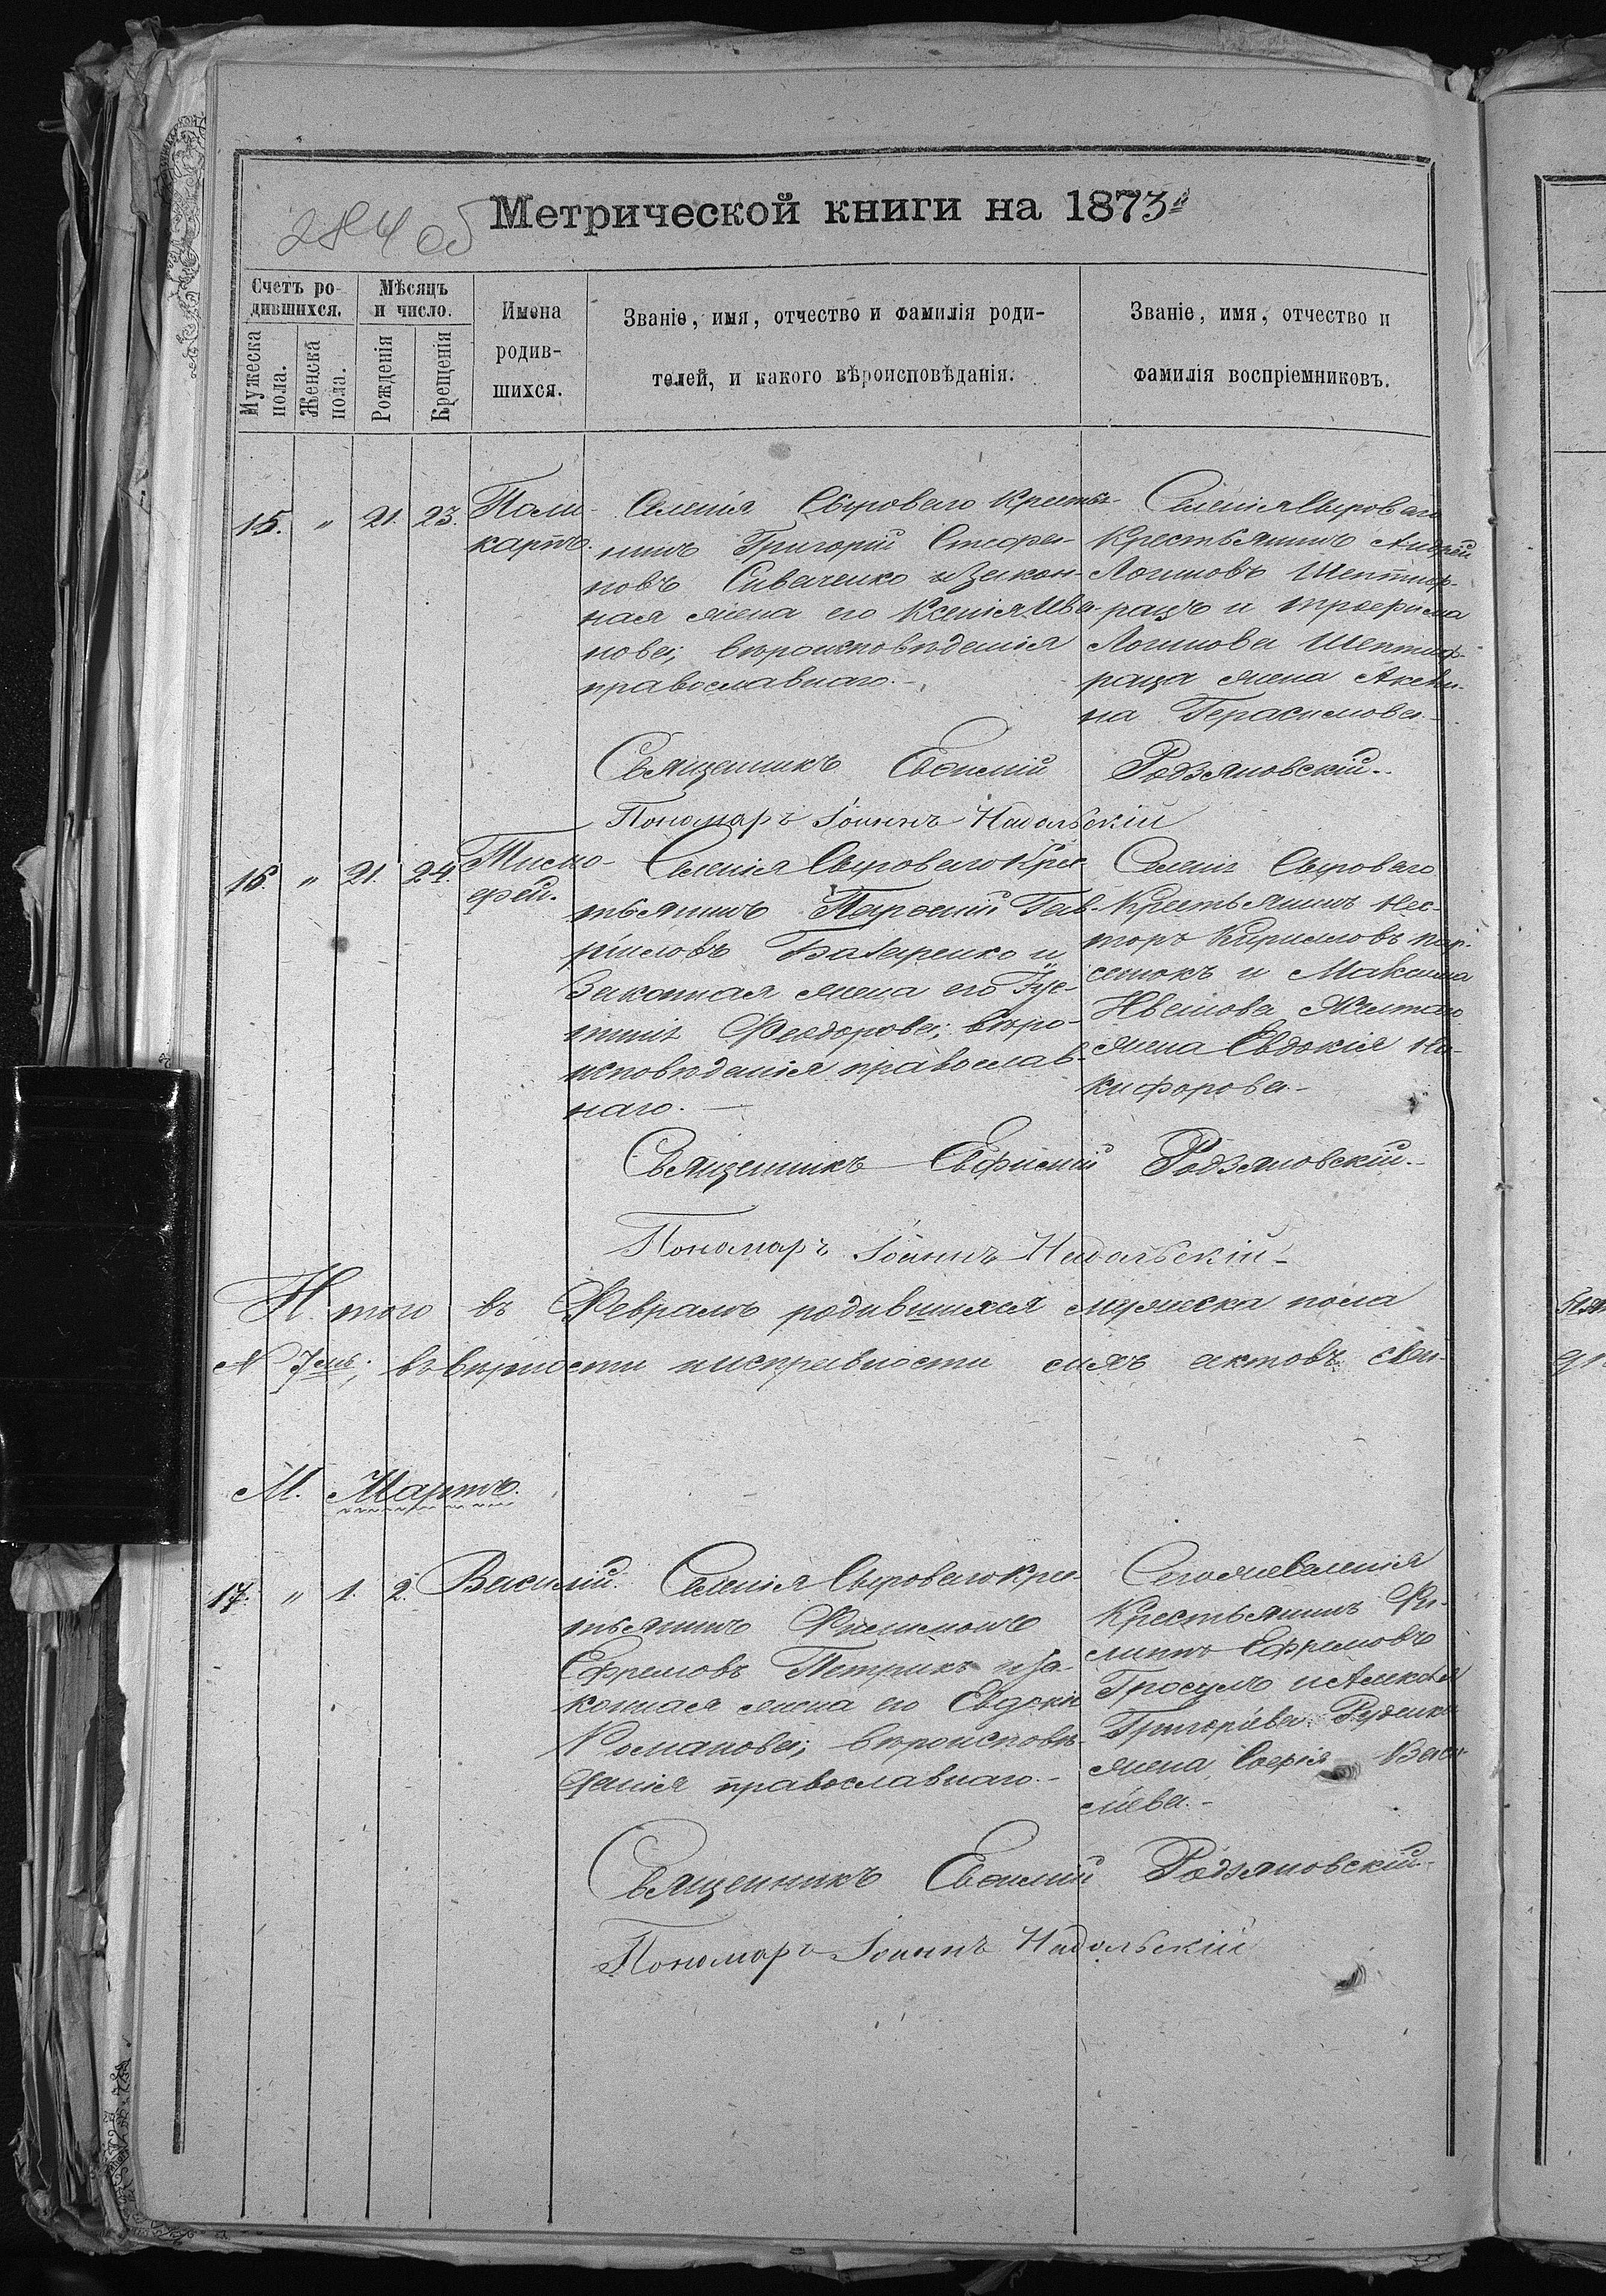 284 об
Метрической книги на 1873й
Счетъ ро-
дившихся.
Мужеска
пола.
Женска
пола.
Мѣсяцъ
и число.
Рожденія
Крещенія
Имена
родив-
шихся.
Званіе, имя, отчество и фамилія роди-
телей, и какого вѣроисповѣданія.
Званіе, имя, отчество и
фамилія воспріемниковъ.
15. " 21. 23.
Поли-
карпъ.
Селенія Сыроваго Кресть-
нинъ Григорій Стефа-
новъ Сиваченко и Закон-
ная жена его Ксенія Ива-
нова; вѣроисповѣданія
православнаго.-
Селенія Сыроваго
Крестьянинъ Андрей
Логиновъ
и Трофима
Логинова
жена Акили-
на Герасимова-
Священникъ Евѳимій Родзяновскій.-
Пономаръ Іоаннъ Надольскій
16. " 21. 24.
Тимо-
фей.
Селенія Сыроваго Крес-
тьянинъ Парѳеній Гав-
ріиловъ и
Законная жена его
Феодорова; вѣро-
исповѣданія православ-
наго.-
Селенія Сыроваго
Крестьянинъ Нес-
торъ Кирилловъ
и Максима
жена Евдокія Ни-
кифорова-
Священникъ Евфимій Родзяновскій.-
Пономаръ Іоаннъ Надольскій-
Итого въ Февралѣ родившихся мужеска пола
7мь; въ вѣрности и исправности сихъ актовъ сви-
М. Мартъ.
17. " 1. 2. Василій.
Селенія Сыроваго Крес-
тьянинъ Филимонъ
Ефремовъ Петрикъ и За-
конная жена его Евдокія
Романова; вѣроисповѣ-
данія православнаго.-
Сегоже Селенія
Крестьянинъ Фи-
липпъ Ефремовъ
и Алексѣя
Григоріева Руденко
жена Софія Васи-
ліева.-
Священникъ Евѳимій Родзяновскій.-
Пономаръ Іоаннъ Надольскій